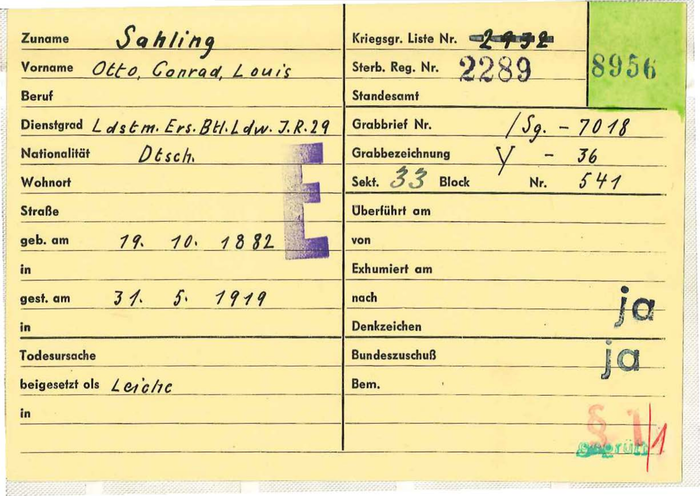 Zuname Sahling
Vorname Otto, Conrad, Louis
Beruf
Dienstgrad Ldstm. Ers. Btl. Ldw. J.R. 29
Nationalität Dtsch.
Wohnort
Straße
geb. am 19. 10. 1882
in
gest. am 31. 5. 1919
in
Todesursache
beigesetzt als Leiche
in
E
Kriegsgr. Liste Nr. 2932
Sterb. Reg. Nr. 2289
8956
Standesamt
Grabbrief Nr. /Sg. - 7018
Grabbezeichnung y - 36
Sekt. 33 Block Nr. 541
Überführt am
von
Exhumiert am
nach ja
Denkzeichen
Bundeszuschuß ja
Bem.
§ 1/1